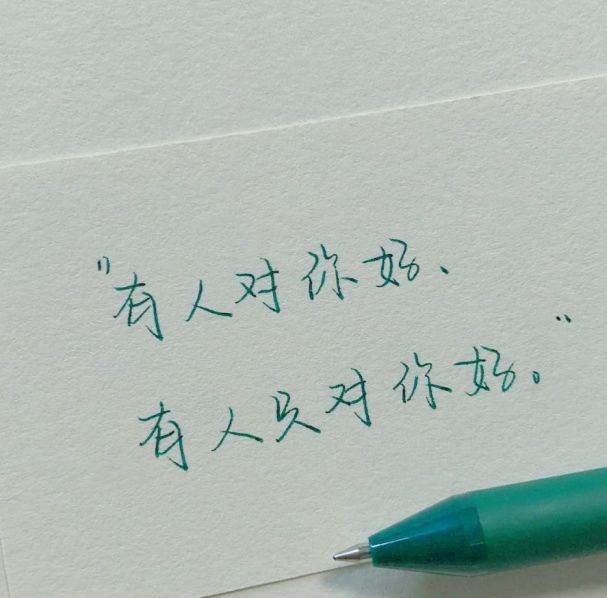 "有人对你好、
有人只对你好。"